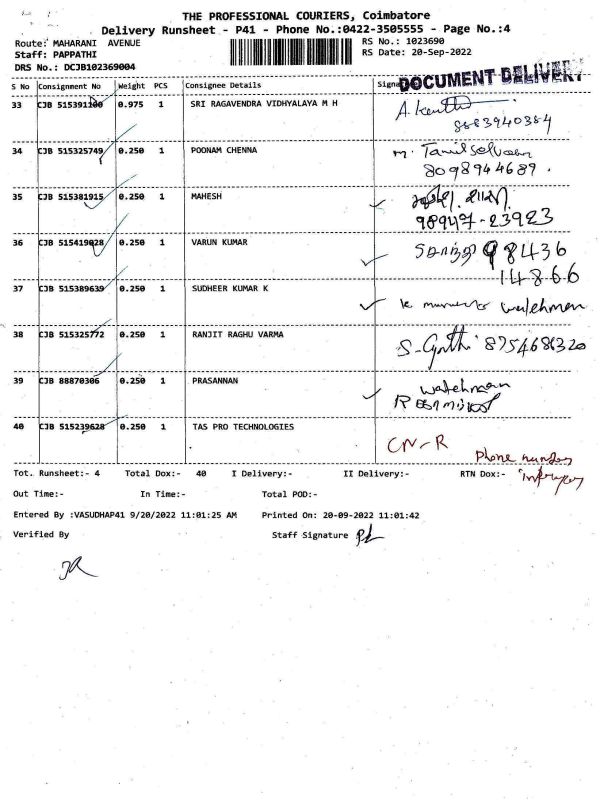 THE PROFESSIONAL COURIERS, Coimbatore
Delivery Runsheet - P41 - Phone No.:0422-3505555 - Page No.:4
Route: MAHARANI AVENUE
RS No.: 1023690
Staff: PAPPATHI
RS Date: 20-Sep-2022
DRS No.: DCJB102369004
DOCUMENT DELIVERY
S No Consignment No Weight PCS Consignee Details
33 CJB 515391100 0.975 1 SRI RAGAVENDRA VIDHYALAYA M H
8883940384
34 CJB 515325749 0.250 1 POONAM CHENNA M. Tamilselvan
8098944689.
35 CJB 515381915 0.250 1 MAHESH
98947-23923
36 CJB 515419028 0.250 1 VARUN KUMAR 98436
14866
37 CJB 515389639 0.250 1 SUDHEER KUMAR K watchman
38 CJB 515325772 0.250 1 RANJIT RAGHU VARMA
39 CJB 88870306 0.250 1 PRASANNAN watchman
40 CJB 515239628 0.250 1 TAS PRO TECHNOLOGIES CN-R
Phone number
Tot. Runsheet:- 4 Total Dox:- 40 I Delivery:- II Delivery:- RTN Dox:-
Out Time:- In Time:- Total POD:-
Entered By :VASUDHAP41 9/20/2022 11:01:25 AM Printed On: 20-09-2022 11:01:42
Verified By Staff Signature